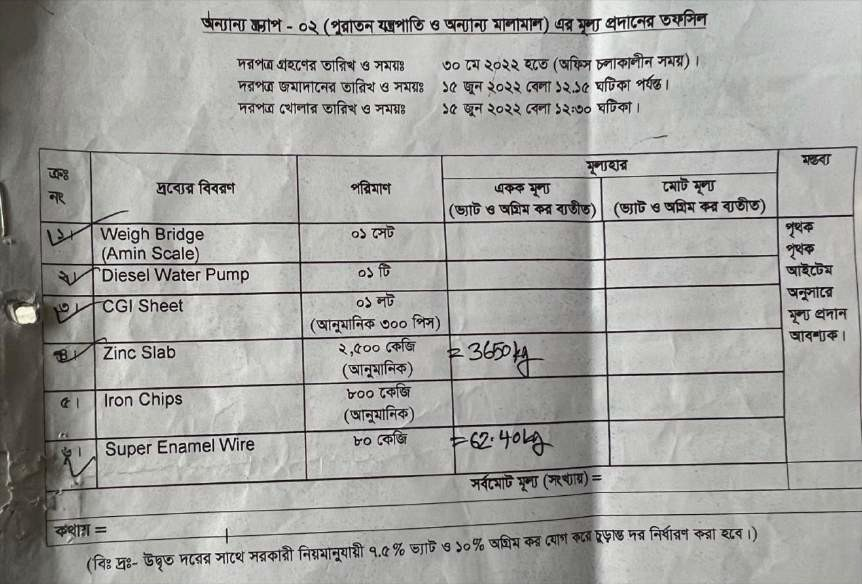 অন্যান্য স্ক্র্যাপ - ০২ (পুরাতন যন্ত্রপাতি ও অন্যান্য মালামাল) এর মূল্য প্রদানের তফসিল
দরপত্র গ্রহণের তারিখ ও সময়ঃ ৩০ মে ২০২২ হতে (অফিস চলাকালীন সময়)।
দরপত্র জমাদানের তারিখ ও সময়ঃ ১৫ জুন ২০২২ বেলা ১২.১৫ ঘটিকা পর্যন্ত।
দরপত্র খোলার তারিখ ও সময়ঃ ১৫ জুন ২০২২ বেলা ১২:৩০ ঘটিকা।
ক্রঃ নং দ্রব্যের বিবরণ পরিমাণ মূল্যহার মন্তব্য
একক মূল্য (ভ্যাট ও অগ্রিম কর ব্যতীত) মোট মূল্য (ভ্যাট ও অগ্রিম কর ব্যতীত)
১। Weigh Bridge ০১ সেট পৃথক
(Amin Scale) পৃথক
২। Diesel Water Pump ০১ টি আইটেম
৩। CGI Sheet ০১ লট অনুসারে
(আনুমানিক ৩০০ পিস) মূল্য প্রদান
৪। Zinc Slab ২,৫০০ কেজি = 3650 kg আবশ্যক।
(আনুমানিক)
৫। Iron Chips ৮০০ কেজি
(আনুমানিক)
৬। Super Enamel Wire ৮০ কেজি = 62.40 kg
সর্বমোট মূল্য (সংখ্যায়) =
কথায় =
(বিঃ দ্রঃ- উদ্ধৃত দরের সাথে সরকারী নিয়মানুযায়ী ৭.৫% ভ্যাট ও ১০% অগ্রিম কর যোগ করে চূড়ান্ত দর নির্ধারণ করা হবে।)